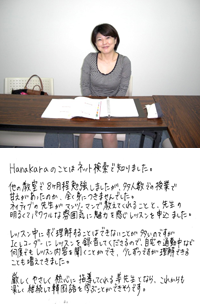 Hanakaraのことはネット検索で知りました。
他の教室で8ヶ月程勉強しましたが、少人数での授業で
甘えがあったのか、全く身につきませんでした。
ネイティブの先生がマンツーマンで教えてくれること、先生の
明るくてパワフルな雰囲気に魅力を感じレッスンを申込ました。
レッスン中にすぐ理解することはできないことが多いのですが
ICレコーダーにレッスンを録音してくださるので、自宅や通勤中など
何度もレッスン内容を聞くことができ、少しずつですが理解できる
ことも増えてきました。
厳しく やさしく 熱心に 指導してくれる先生なら、これからも
楽しく継続して韓国語を学ぶことができそうです。